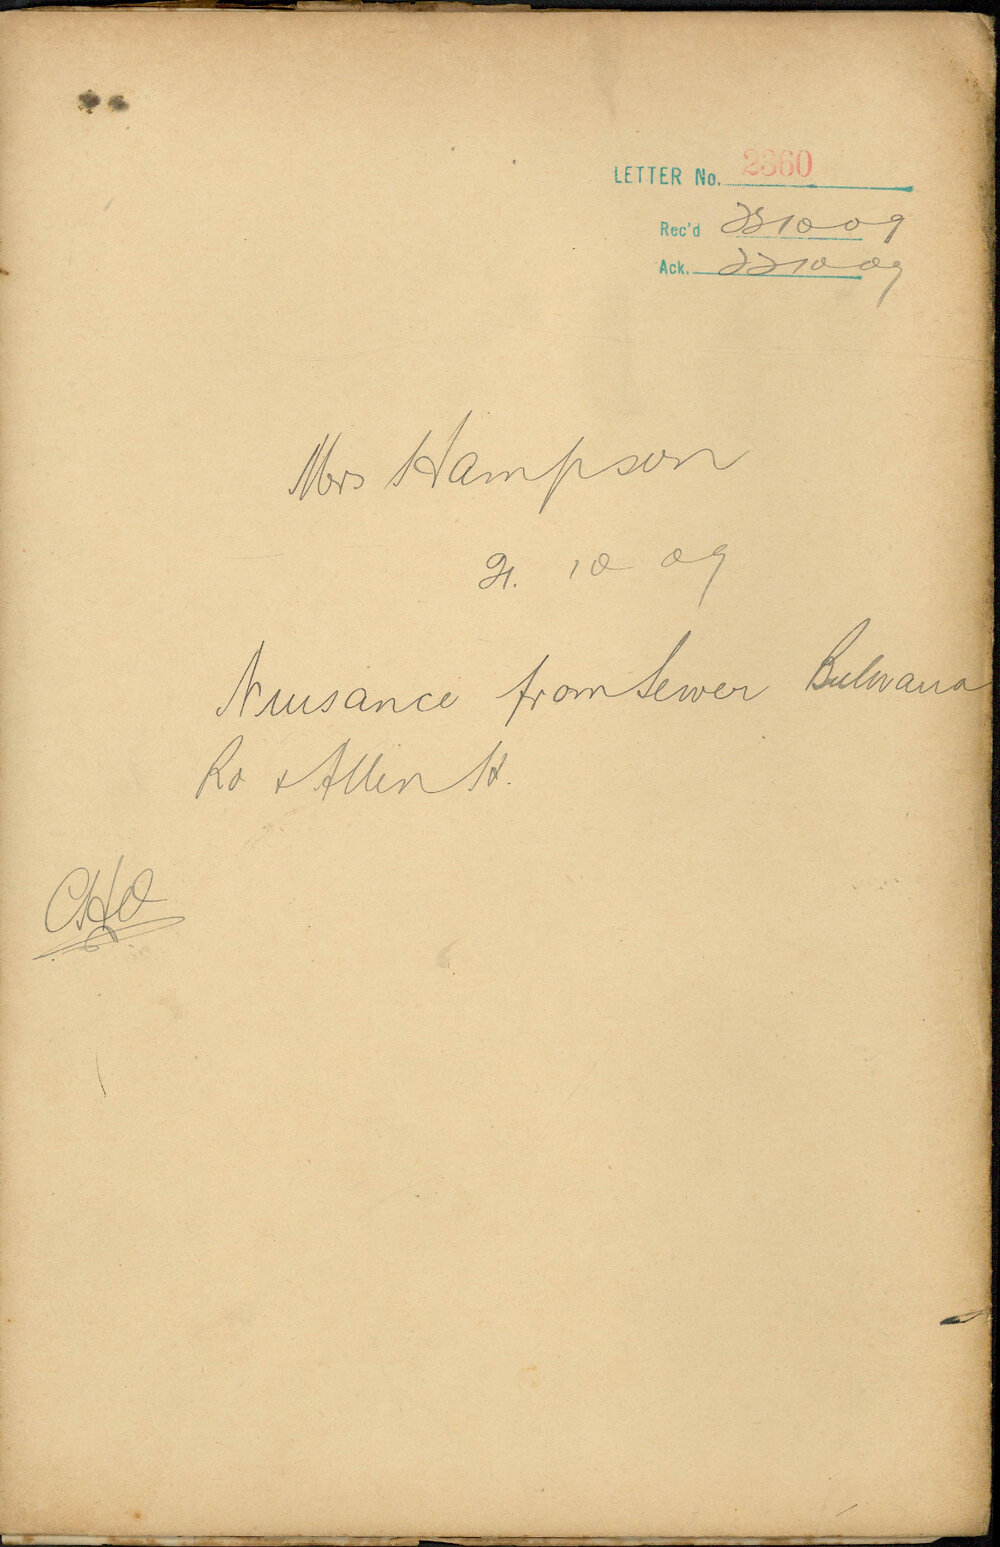 LETTER No. 2360
Rec'd 22 10 09
Ack. 22 10 09
Mrs Hampson
21. 10 09
Nuisance from Sewer Bulwara
Rd & Allen St.
CHO